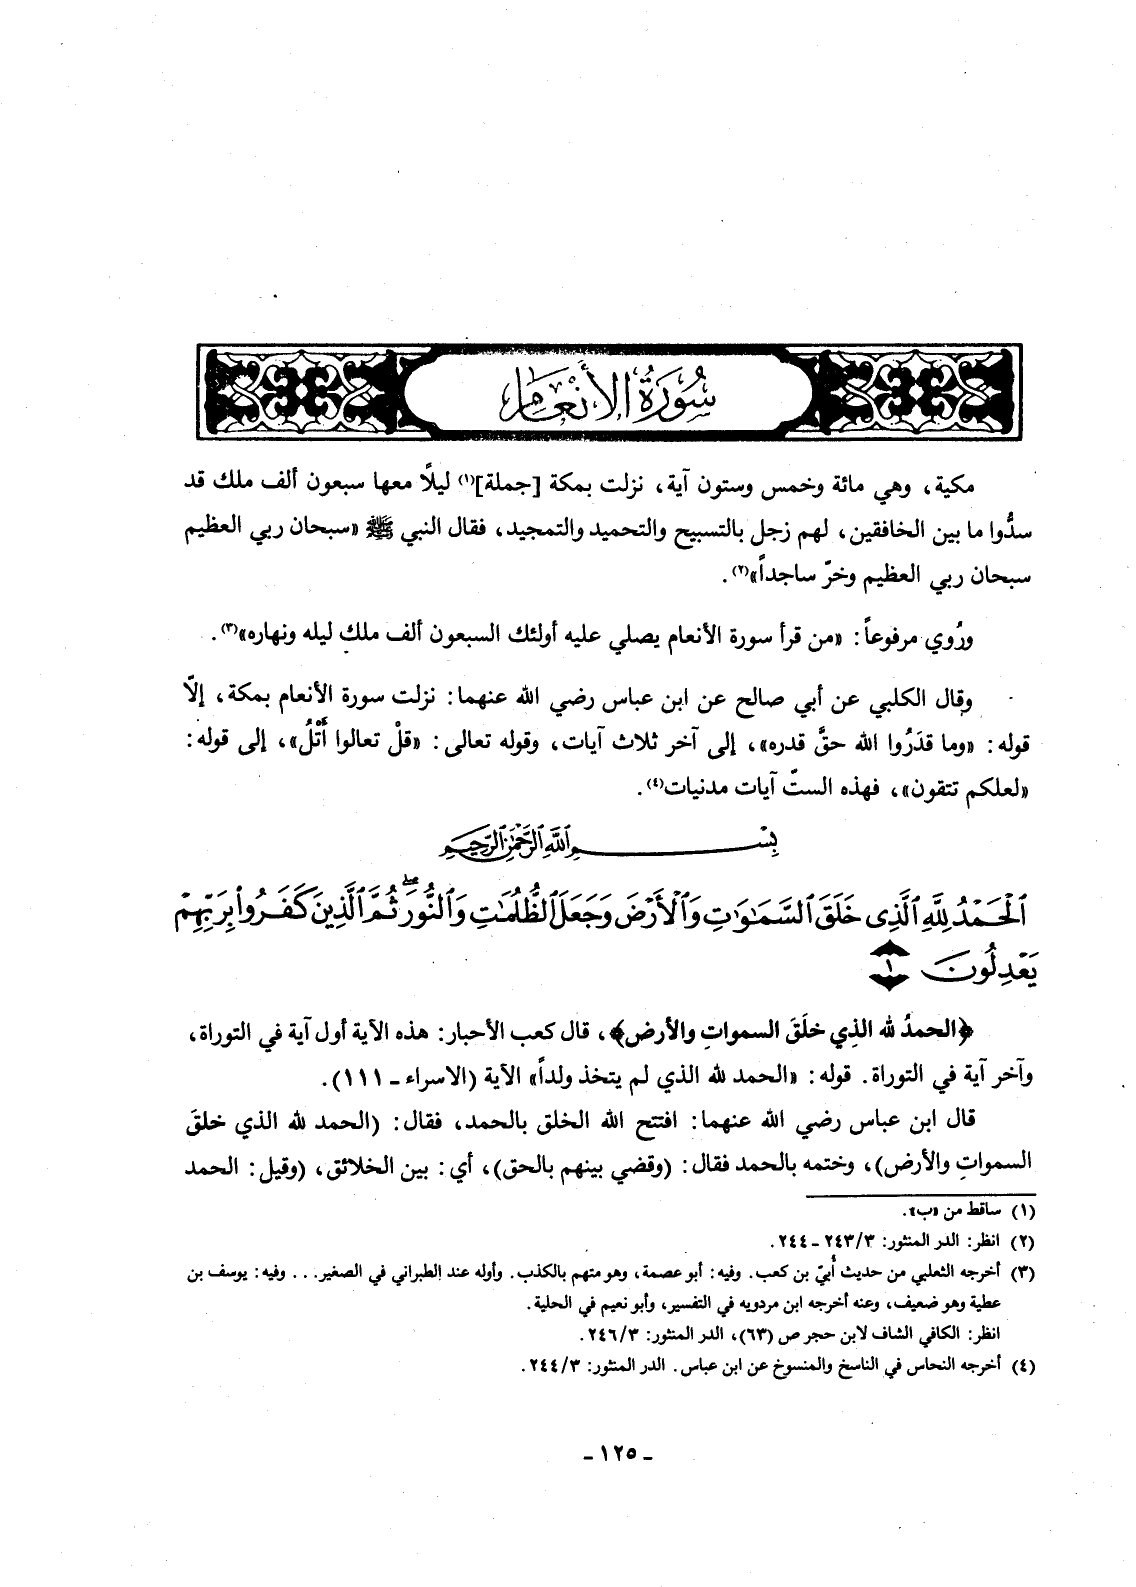 سُورَةُ الأَنْعَام
مكية، وهي مائة وخمس وستون آية، نزلت بمكة [جملة](١) ليلًا معها سبعون ألف ملك قد
سدُّوا ما بين الخافقين، لهم زجل بالتسبيح والتحميد والتمجيد، فقال النبي ﷺ «سبحان ربي العظيم
سبحان ربي العظيم وخرّ ساجداً»(٢).
ورُوي مرفوعاً: «من قرأ سورة الأنعام يصلي عليه أولئك السبعون ألف ملك ليله ونهاره»(٣).
وقال الكلبي عن أبي صالح عن ابن عباس رضي الله عنهما: نزلت سورة الأنعام بمكة، إلّا
قوله: «وما قدَرُوا الله حقَّ قدره»، إلى آخر ثلاث آيات، وقوله تعالى: «قلْ تعالوا أَتْلُ»، إلى قوله:
«لعلكم تتقون»، فهذه الستّ آيات مدنيات(٤).
بِسْمِ ٱللَّهِ ٱلرَّحْمَٰنِ ٱلرَّحِيمِ
ٱلْحَمْدُ لِلَّهِ ٱلَّذِى خَلَقَ ٱلسَّمَٰوَٰتِ وَٱلْأَرْضَ وَجَعَلَ ٱلظُّلُمَٰتِ وَٱلنُّورَ ۖ ثُمَّ ٱلَّذِينَ كَفَرُوا۟ بِرَبِّهِمْ
يَعْدِلُونَ ١
﴿الحمدُ لله الذِي خلَقَ السمواتِ والأرض﴾، قال كعب الأحبار: هذه الآية أول آية في التوراة،
وآخر آية في التوراة. قوله: «الحمد لله الذي لم يتخذ ولداً» الآية (الاسراء - ١١١).
قال ابن عباس رضي الله عنهما: افتتح الله الخلق بالحمد، فقال: (الحمد لله الذي خلقَ
السمواتِ والأرض)، وختمه بالحمد فقال: (وقضي بينهم بالحق)، أي: بين الخلائق، (وقيل: الحمد
(١) ساقط من «ب».
(٢) انظر: الدر المنثور: ٢٤٣/٣ - ٢٤٤.
(٣) أخرجه الثعلبي من حديث أُبيّ بن كعب. وفيه: أبو عصمة، وهو متهم بالكذب. وأوله عند الطبراني في الصغير... وفيه: يوسف بن
عطية وهو ضعيف، وعنه أخرجه ابن مردويه في التفسير، وأبو نعيم في الحلية.
انظر: الكافي الشاف لابن حجر ص (٦٣)، الدر المنثور: ٢٤٦/٣.
(٤) أخرجه النحاس في الناسخ والمنسوخ عن ابن عباس. الدر المنثور: ٢٤٤/٣.
- ١٢٥ -